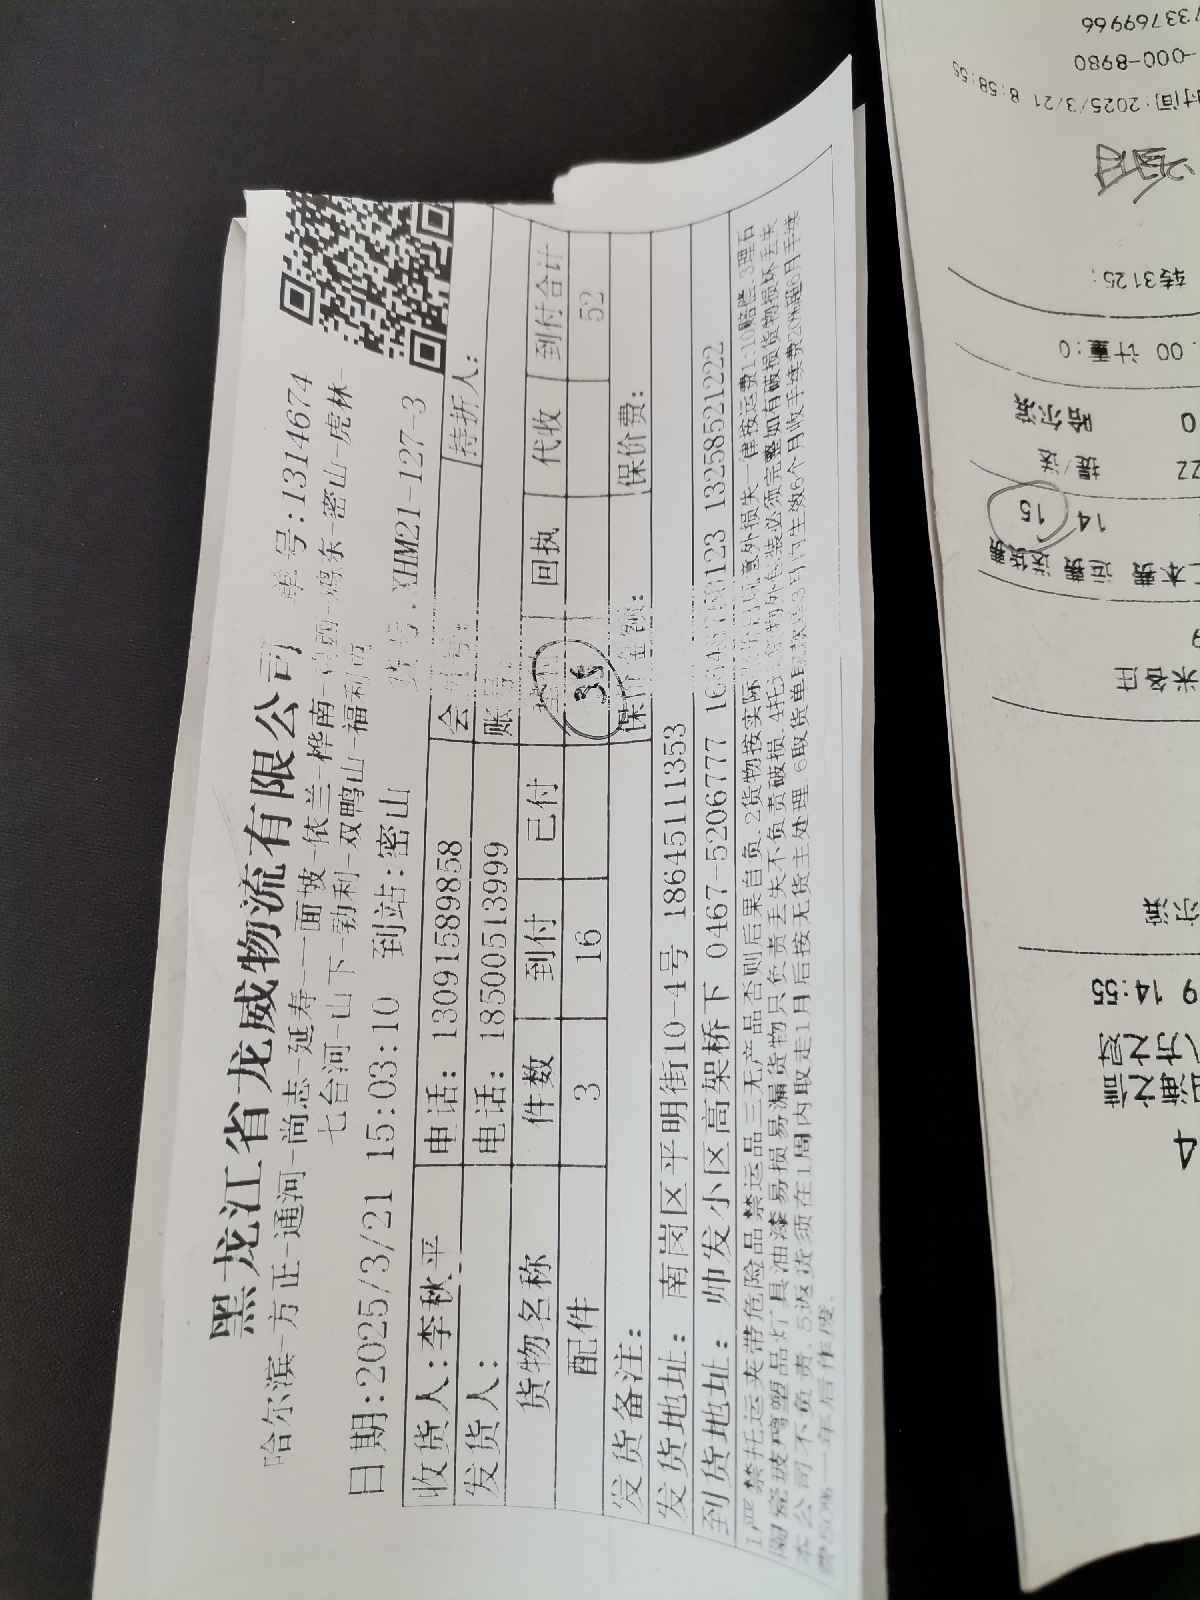 黑龙江省龙威物流有限公司 单号:1314674
哈尔滨-方正-通河-尚志-延寿-一面坡-依兰-桦南-鸡东-密山-虎林-
七台河-山下-勃利-双鸭山-福利屯
日期:2025/3/21 15:03:10 到站:密山 货号:XHM21-127-3
收货人:李秋平 电话:13091589858 会 持折人:
发货人: 电话:18500513999 账号:
货物名称 件数 到付 已付 回执 代收 到付合计
配件 3 16 36 52
发货备注: 保价金额: 保价费:
发货地址: 南岗区平明街10-4号 18645111353
到货地址: 帅发小区高架桥下 0467-5206777 13258521222
1严禁托运夹带危险品禁运品三无产品否则后果自负.2货物按实际 意外损失一律按运费1:10赔偿.3理石
陶瓷玻璃塑品灯具油漆易损易漏货物只负责丢失不负责破损.4托运货物外包装必须完整如有破损货物损坏丢失
本公司不负责.5返货须在1周内取走1月后按无货主处理.6取货单取款
费50%一年后作废.
33769966
-000-8980
时间:2025/3/21 8:58:55
转3125:
.00 计重:0
0 哈尔滨
ZZ 提/送
14 15
本费 运费 送货费
9
米备庄
尔滨
9 14:55
八方之财
四海之信
4